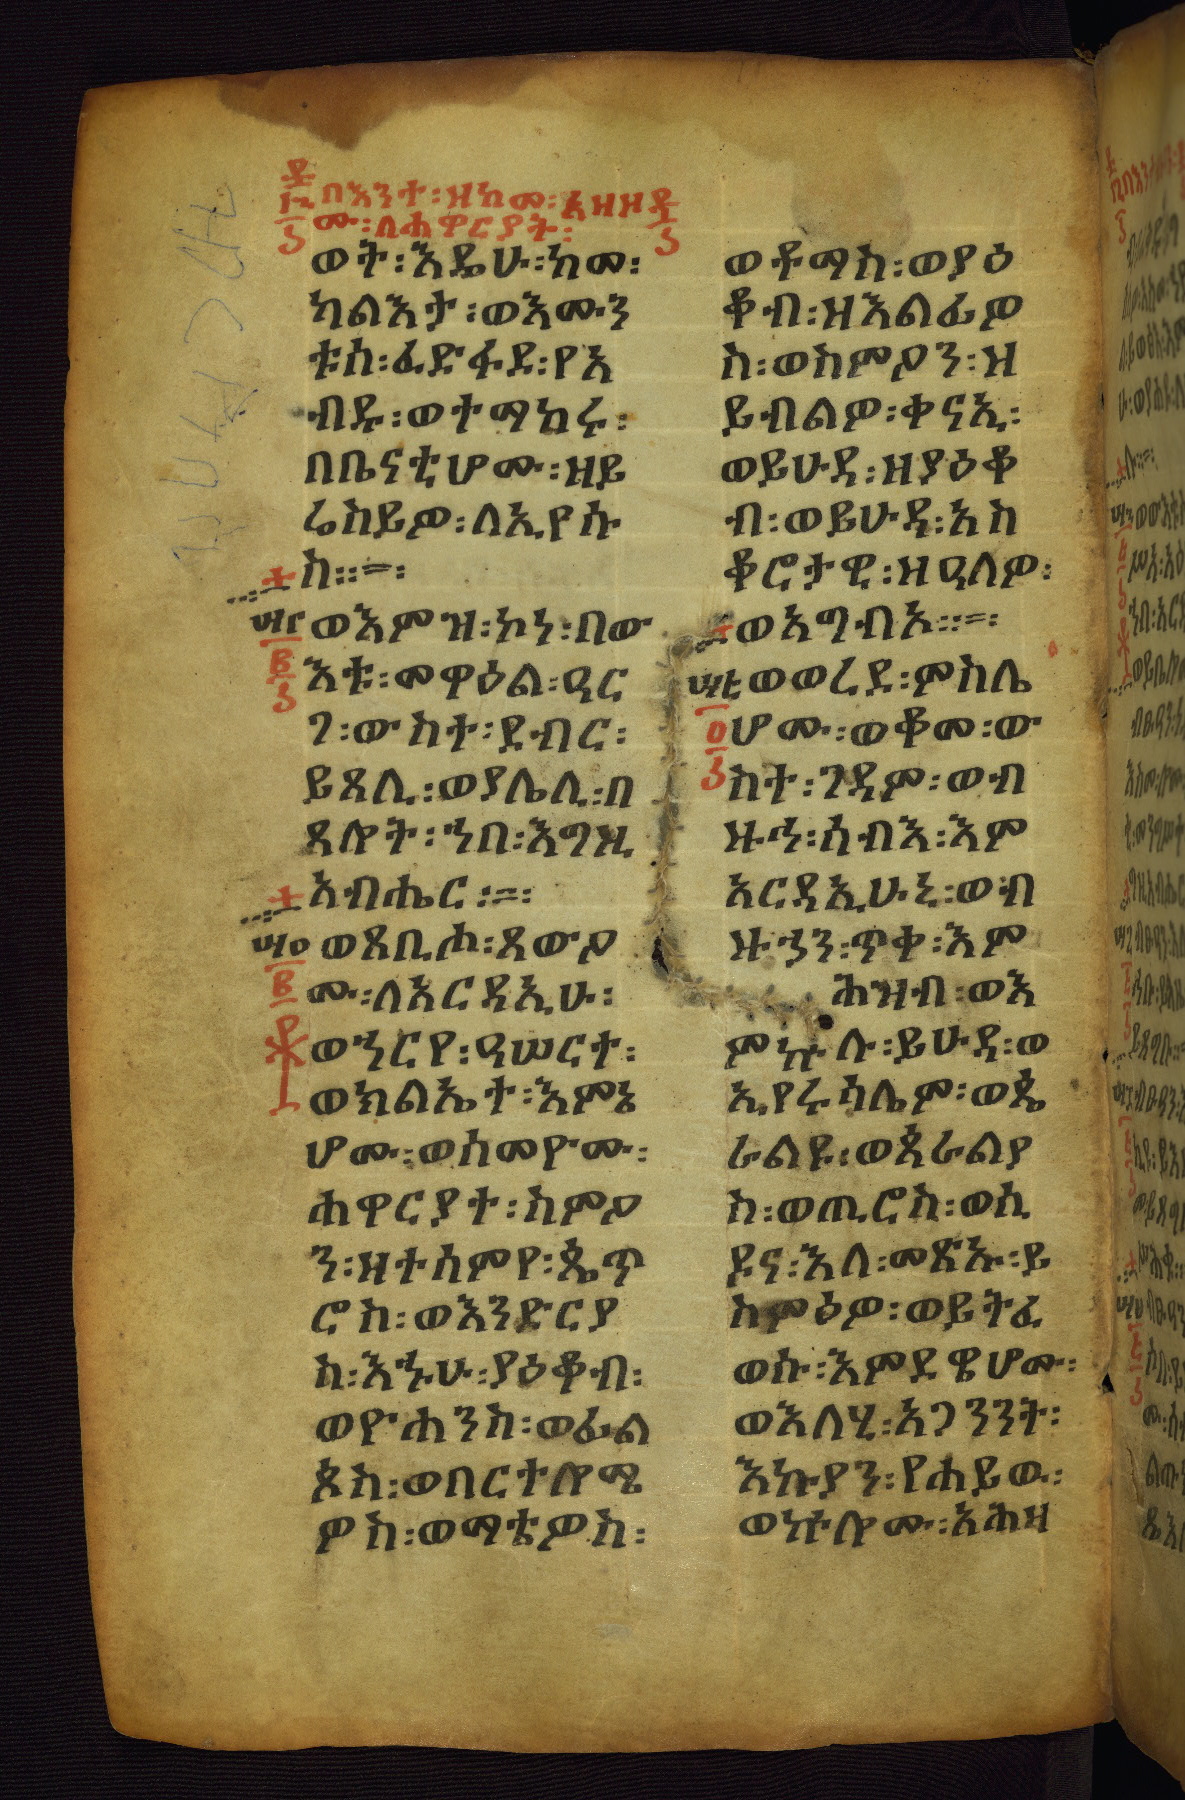 በእንተ፡ዘከመ፡አዘዘ
ሙ፡ለሐዋርያት፡
ወት፡እዴሁ፡ከመ፡
ካልእታ፡ወእሙን
ቱሰ፡ፈድፋደ፡የአ
ብዱ፡ወተማከሩ፡
በቤናቲሆሙ፡ዘይ
ሬስይዎ፡ለኢየሱ
ስ፡፡=፡
ወእምዝ፡ኮነ፡በው
እቱ፡መዋዕል፡ዓር
ገ፡ውስተ፡ደብር፡
ይጸሊ፡ወያሌሊ፡በ
ጸሎት፡ኀበ፡እግዚ
አብሔር፡=፡
ወጸቢሖ፡ጸውዖ
ሙ፡ለአርዳኢሁ፡
ወኀርየ፡ዓሠርተ፡
ወክልኤተ፡እምኔ
ሆሙ፡ወሰመዮሙ፡
ሐዋርያተ፡ስምዖ
ን፡ዘተሰምየ፡ጴጥ
ሮስ፡ወእንድርያ
ስ፡እኁሁ፡ያዕቆብ፡
ወዮሐንስ፡ወፊል
ጶስ፡ወበርተሎሜ
ዎስ፡ወማቴዎስ፡
ወቶማስ፡ወያዕ
ቆብ፡ዘእልፊዮ
ስ፡ወስምዖን፡ዝ
ይብልዎ፡ቀናኢ፡
ወይሁዳ፡ዘያዕቆ
ብ፡ወይሁዳ፡አስ
ቆሮታዊ፡ዘዓለዎ፡
ወአግብአ፡፡=፡
ወወረደ፡ምስሌ
ሆሙ፡ወቆመ፡ው
ስተ፡ገዳም፡ወብ
ዙኅ፡ሰብእ፡እም
አርዳኢሁኒ፡ወብ
ዙኃን፡ጥቀ፡እም
ሕዝብ፡ወእ
ምኵሉ፡ይሁዳ፡ወ
ኢየሩሳሌም፡ወጴ
ራልዩ፡ወጳራልያ
ስ፡ወጢሮስ፡ወሲ
ዶና፡እለ፡መጽኡ፡ይ
ስምዕዎ፡ወይትፈ
ወሱ፡እምደዌሆሙ፡
ወእለሂ፡አጋንንት፡
እኩያን፡የሐይወ፡
ወኵሎሙ፡አሕዛ